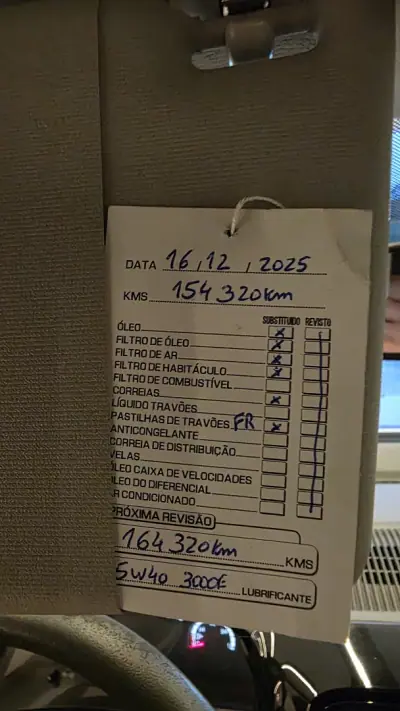 DATA 16, 12, 2025
KMS 154320km
SUBSTITUIDO REVISTO
ÓLEO x
FILTRO DE ÓLEO x
FILTRO DE AR x
FILTRO DE HABITÁCULO x
FILTRO DE COMBUSTÍVEL
CORREIAS
LÍQUIDO TRAVÕES x
PASTILHAS DE TRAVÕES FR x
ANTICONGELANTE
CORREIA DE DISTRIBUIÇÃO
VELAS
ÓLEO CAIXA DE VELOCIDADES
ÓLEO DO DIFERENCIAL
AR CONDICIONADO
PRÓXIMA REVISÃO
164320km KMS
5W40 LUBRIFICANTE